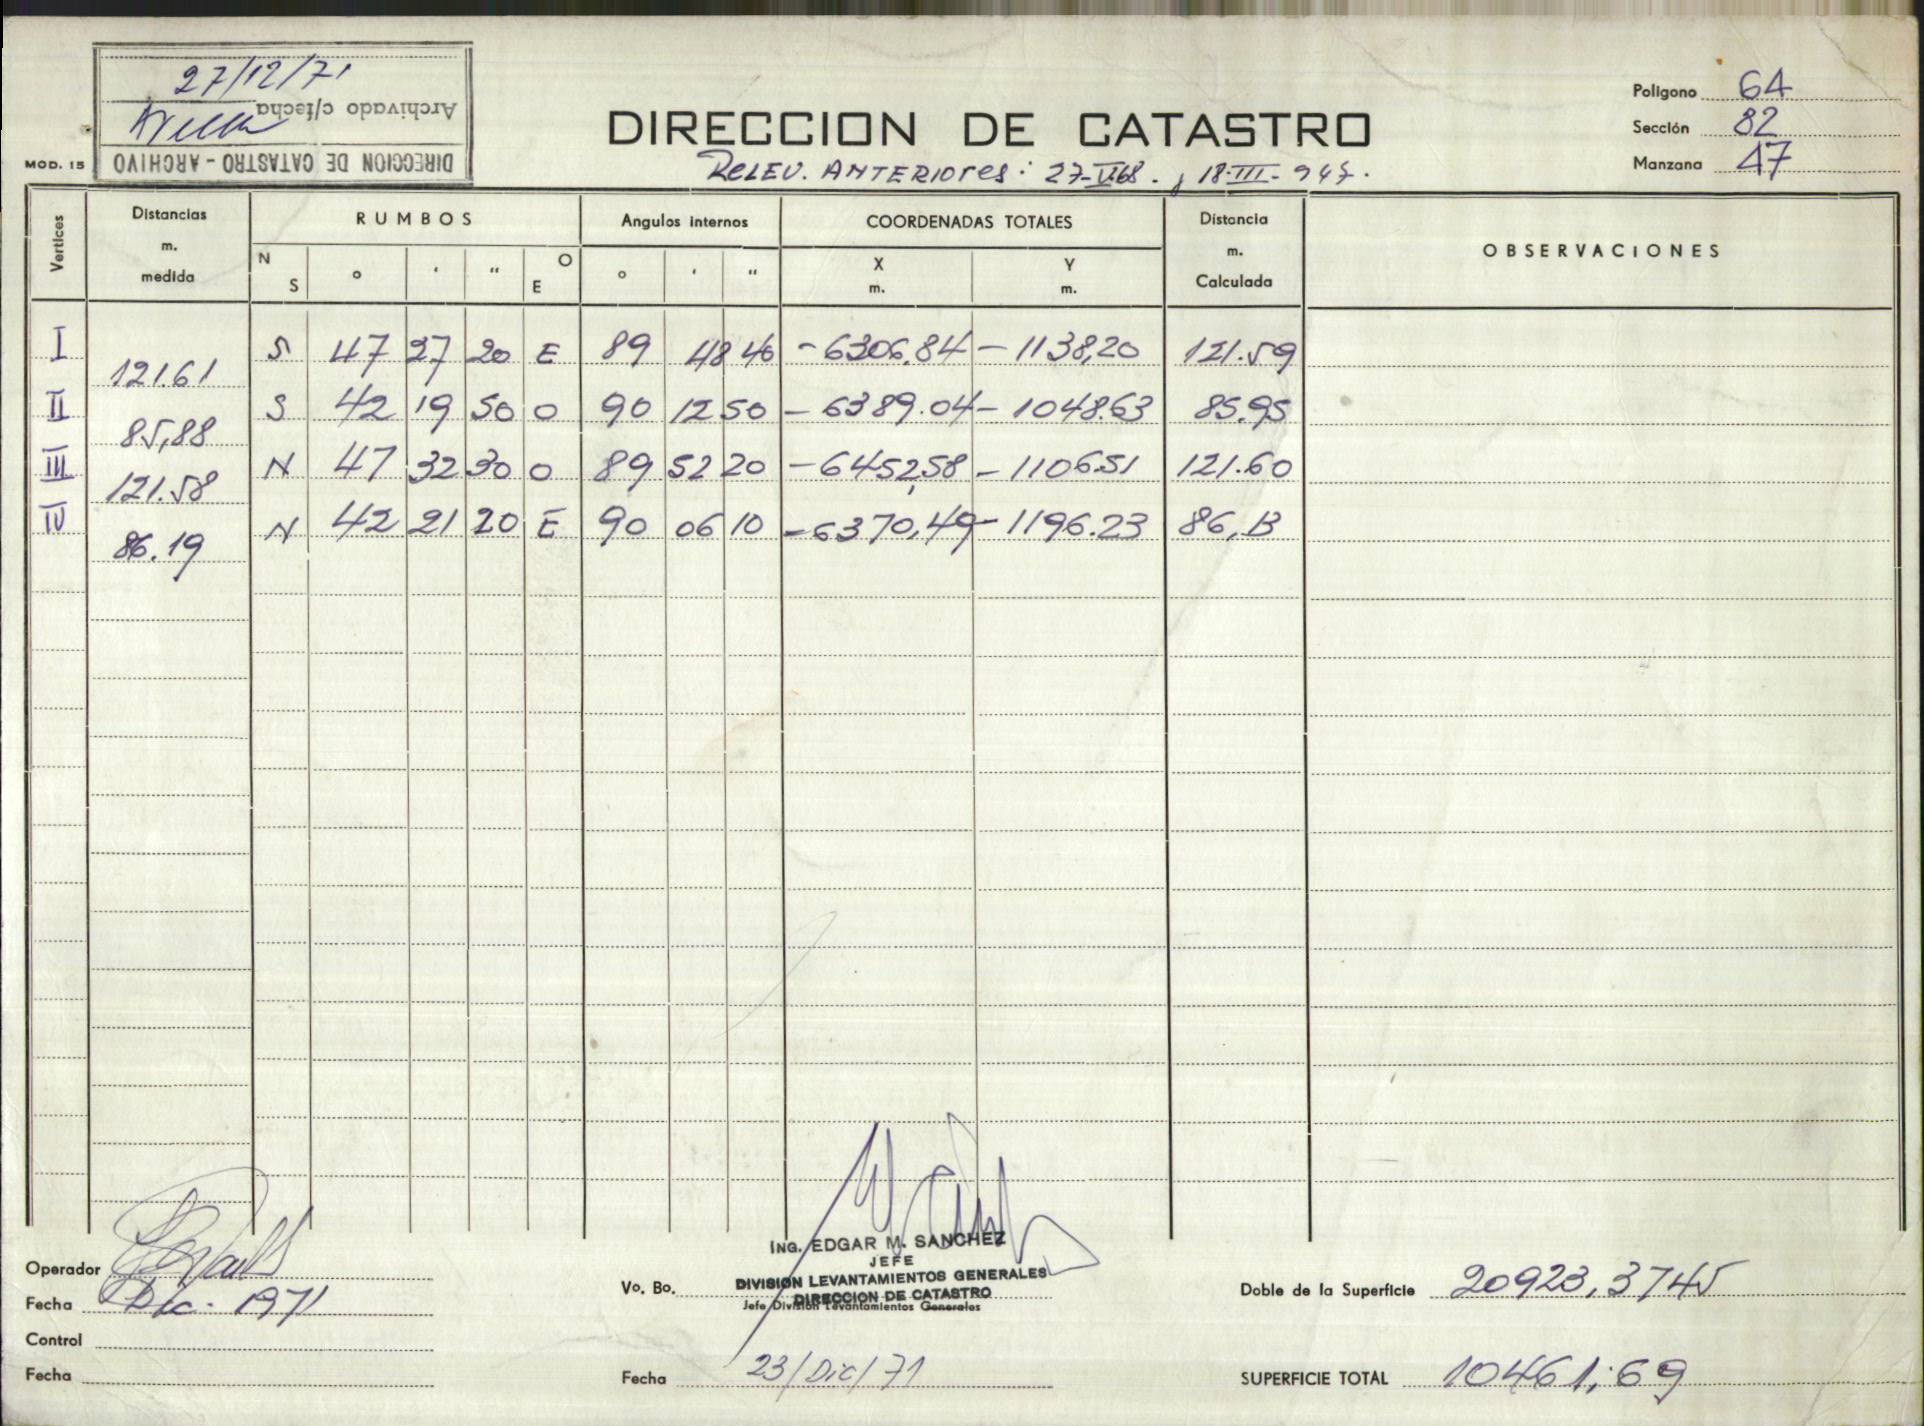 27/12/71
Archivado c/fecha
DIRECCION DE CATASTRO - ARCHIVO
MOD. 15
DIRECCION DE CATASTRO
Relev. Anteriores: 27-VI-68. , 18-III-947.
Polígono 64
Sección 82
Manzana 47
Vertices
Distancias m. medida
RUMBOS
N S ° ' " O E
Angulos internos
° ' "
COORDENADAS TOTALES
X m. Y m.
Distancia m. Calculada
OBSERVACIONES
I S 47 27 20 E 89 48 40 -6306.84 -1138,20 121.59
121.61
II S 42 19 50 O 90 12 50 -6389.04 -1048.63 85.95
85,88
III N 47 32 30 O 89 52 20 -6452,58 -1106.51 121.60
121.58
IV N 42 21 20 E 90 06 10 -6370,49 -1196.23 86,13
86.19
Operador
Fecha Dic. 1971
Control
Fecha
Vo. Bo.
ING. EDGAR M. SANCHEZ
JEFE
DIVISION LEVANTAMIENTOS GENERALES
DIRECCION DE CATASTRO
Jefe División Levantamientos Generales
Fecha 23/Dic/71
Doble de la Superficie 20923,3745
SUPERFICIE TOTAL 10461,69